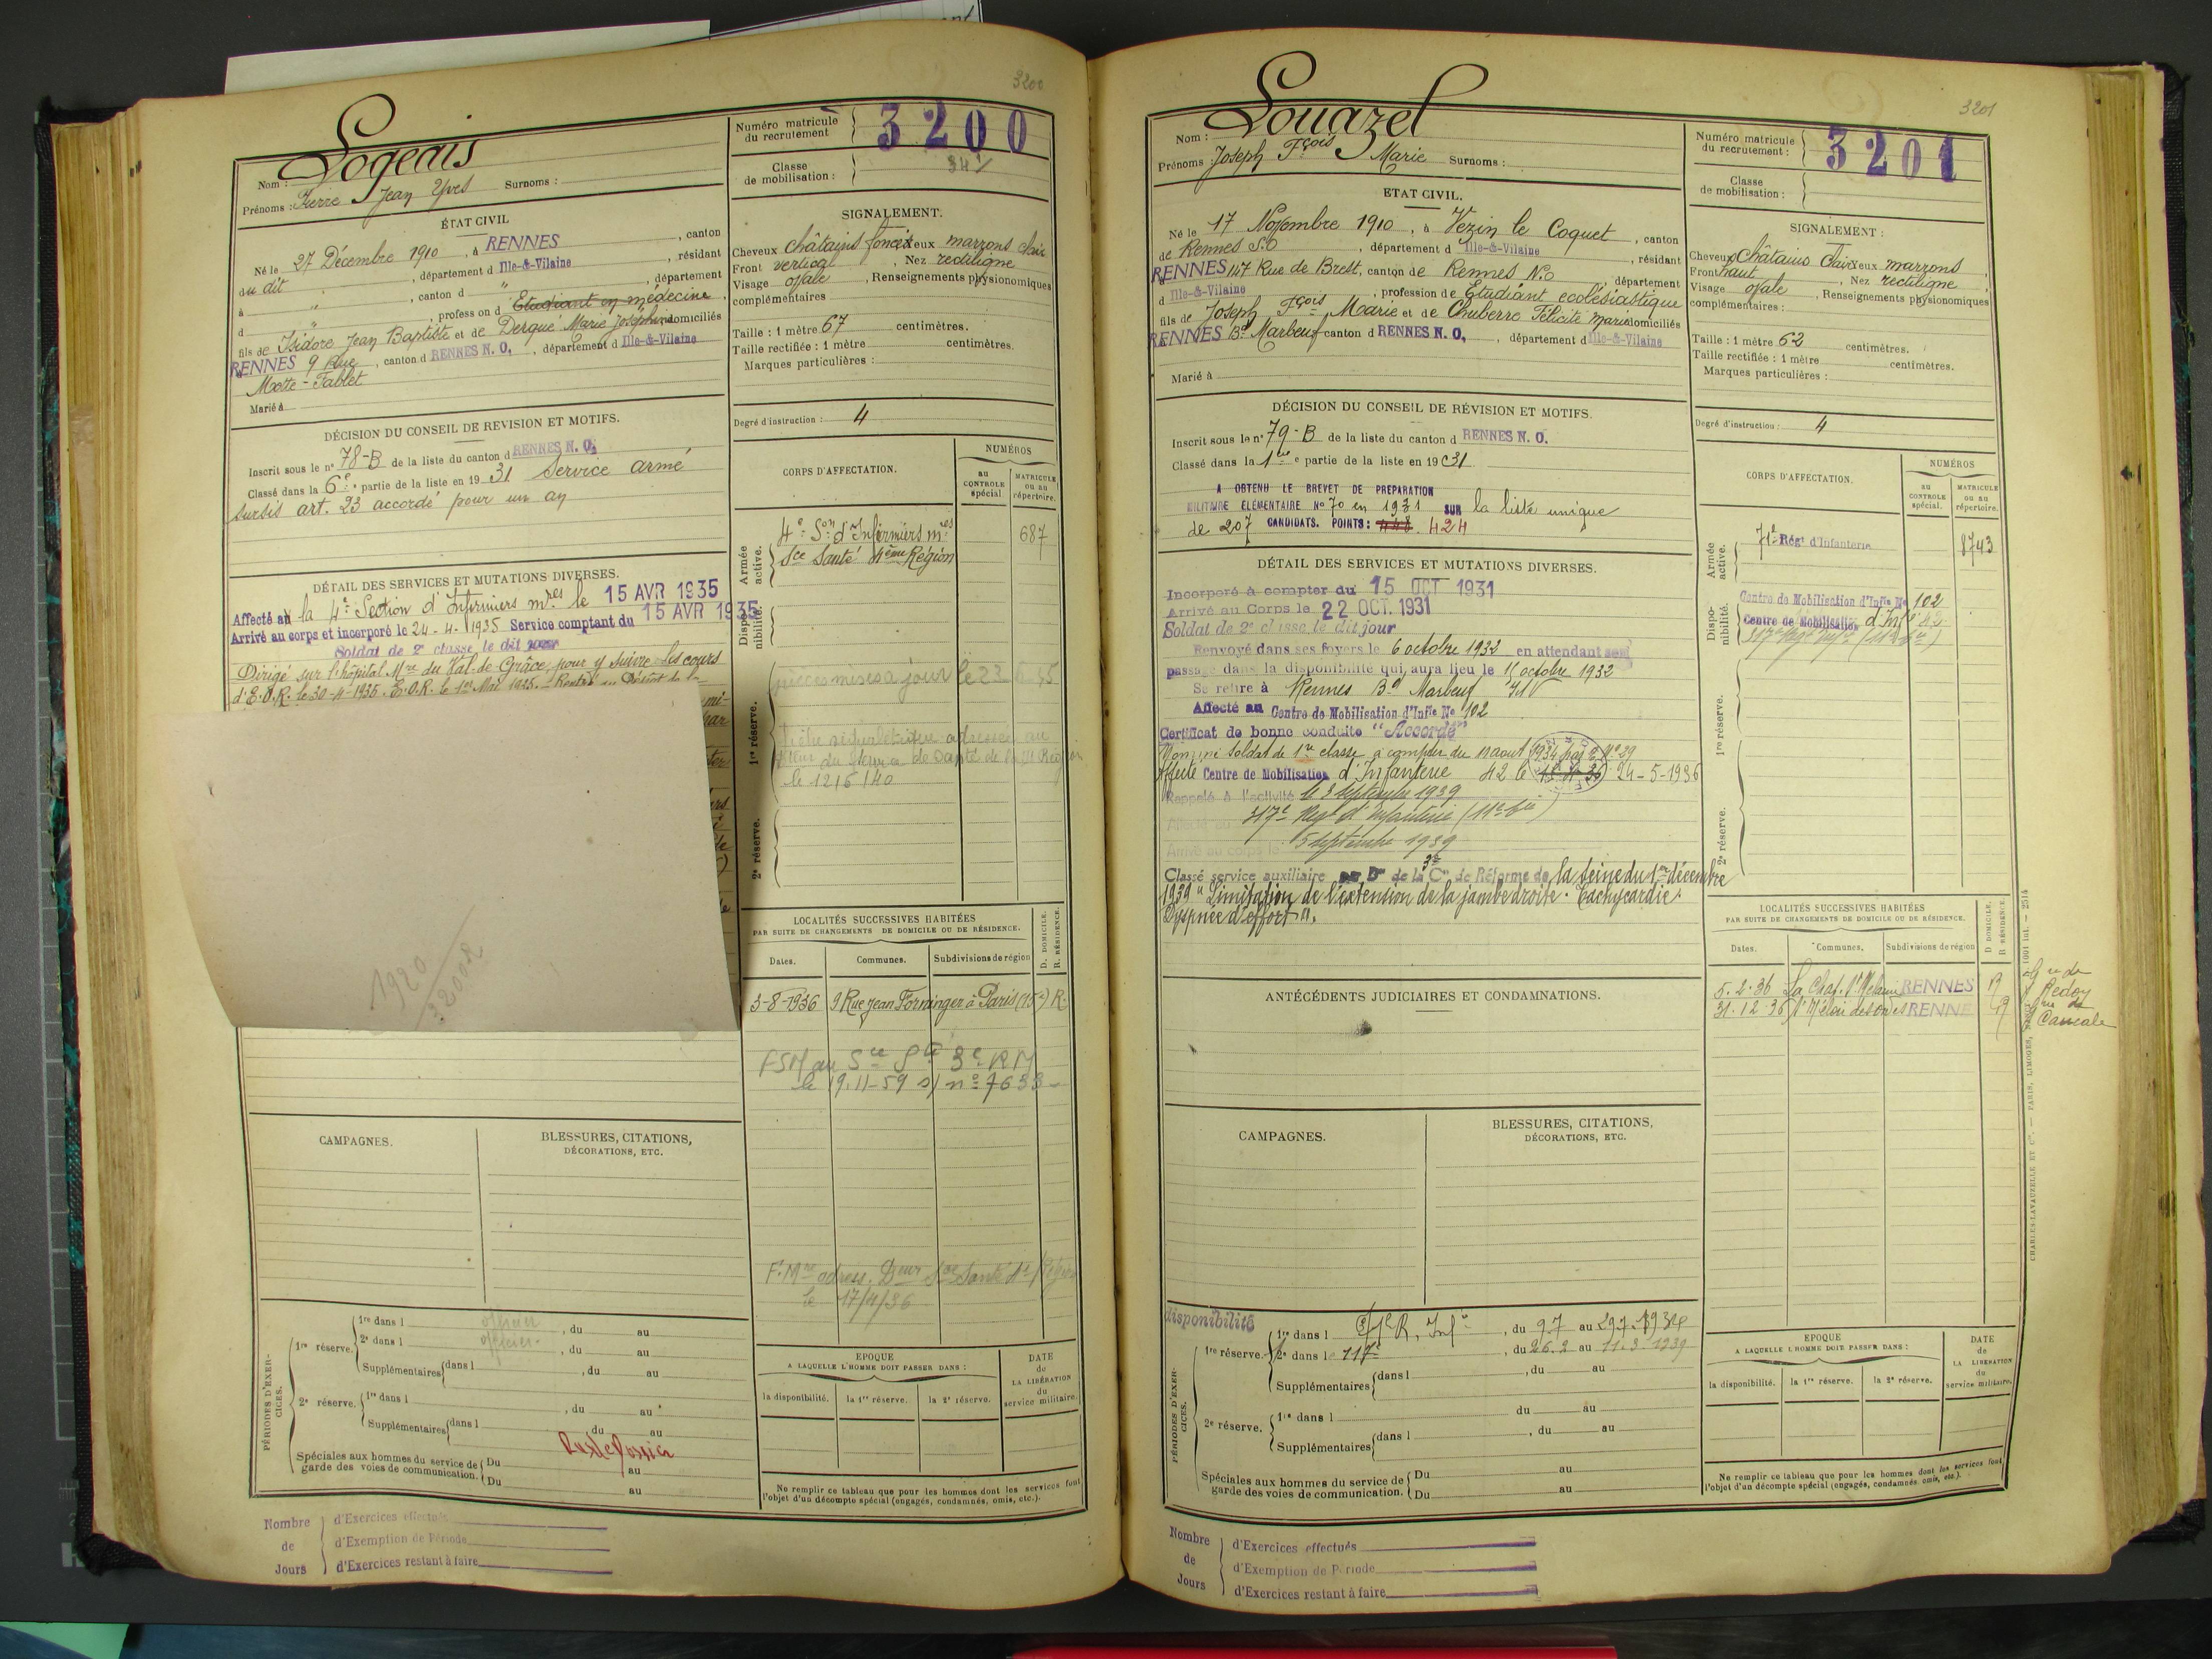 3200
Nom : Logeais
Prénoms : Pierre Jean Yves Surnoms :
Numéro matricule du recrutement 3200
Classe de mobilisation : 34
ÉTAT CIVIL
Né le 27 Décembre 1910, à RENNES, canton
du dit, département d Ille-&-Vilaine, résidant
à ", canton d ", département
d ", profession d Etudiant en médecine,
fils de Isidore Jean Baptiste et de Derqué Marie Joséphine domiciliés
RENNES 9 Rue, canton d RENNES N. O., département d Ille-&-Vilaine
Motte-Fablet
Marié à
SIGNALEMENT.
Cheveux châtains foncés Yeux marrons clair
Front vertical, Nez rectiligne
Visage ovale, Renseignements physionomiques
complémentaires
Taille : 1 mètre 67 centimètres.
Taille rectifiée : 1 mètre centimètres.
Marques particulières :
Degré d'instruction : 4
DÉCISION DU CONSEIL DE REVISION ET MOTIFS.
Inscrit sous le n° 78-B de la liste du canton d RENNES N. O.
Classé dans la 6e partie de la liste en 19 31 Service armé
sursis art. 23 accordé pour un an
DÉTAIL DES SERVICES ET MUTATIONS DIVERSES.
Affecté au la 4e Section d'Infirmiers mres le 15 AVR 1935
Arrivé au corps et incorporé le 24-4-1935 Service comptant du 15 AVR 1935
Soldat de 2e classe le dit jour
Dirigé sur l'hôpital Mre du Val-de-Grâce, pour y suivre les cours
d'E.O.R. le 30-4-1935. E.O.R. le 1er Mai 1935.
1920
32002
CORPS D'AFFECTATION.
NUMÉROS
au CONTROLE spécial.
MATRICULE ou au répertoire.
Armée active.
4e Son d'Infirmiers mres 687
Sce Santé 4ème Région
Disponibilité.
pièces mises à jour le 23
1re réserve.
de Santé de la
le 1216/40
2e réserve.
LOCALITÉS SUCCESSIVES HABITÉES
PAR SUITE DE CHANGEMENTS DE DOMICILE OU DE RÉSIDENCE.
D. DOMICILE. R. RÉSIDENCE.
Dates. Communes. Subdivisions de région
3-8-1936 9 Rue Jean Formingé à Paris (15e) R.
FSM au Sce Sté 3e RM
le 19.11-59 s/ n° 7633
F. Mre adress. Deur Sce Santé 4e Région
le 17/4/36
CAMPAGNES.
BLESSURES, CITATIONS, DÉCORATIONS, ETC.
PÉRIODES D'EXERCICES.
1re réserve. 1re dans l officier, du au
2e dans l officier, du au
Supplémentaires dans l, du au
2e réserve. 1re dans l, du au
Supplémentaires dans l du au
Spéciales aux hommes du service de garde des voies de communication. Du au
Du au
EPOQUE
A LAQUELLE L'HOMME DOIT PASSER DANS :
la disponibilité. la 1re réserve. la 2e réserve.
DATE de LA LIBÉRATION du service militaire.
Ne remplir ce tableau que pour les hommes dont les services font
l'objet d'un décompte spécial (engagés, condamnés, omis, etc.).
Nombre de Jours
d'Exercices effectués
d'Exemption de Période
d'Exercices restant à faire
3201
Nom : Louazel
Prénoms : Joseph Fçois Marie Surnoms :
Numéro matricule du recrutement : 3201
Classe de mobilisation :
ETAT CIVIL.
Né le 17 Novembre 1910, à Vezin le Coquet, canton
de Rennes S.O, département d Ille-&-Vilaine, résidant
RENNES 147 Rue de Brest, canton de Rennes N.O, département
d Ille-&-Vilaine, profession de Etudiant ecclésiastique
fils de Joseph Fçois Marie et de Chuberre Félicité Marie domiciliés
RENNES Bd Marbeuf canton d RENNES N. O., département d Ille-&-Vilaine
Marié à
SIGNALEMENT :
Cheveux châtains clair Yeux marrons
Front haut, Nez rectiligne
Visage ovale, Renseignements physionomiques
complémentaires :
Taille : 1 mètre 62 centimètres.
Taille rectifiée : 1 mètre centimètres.
Marques particulières :
Degré d'instruction : 4
DÉCISION DU CONSEIL DE RÉVISION ET MOTIFS.
Inscrit sous le n° 79-B de la liste du canton d RENNES N. O.
Classé dans la 1ère partie de la liste en 19 31
A OBTENU LE BREVET DE PREPARATION
MILITAIRE ELEMENTAIRE No 70 en 1931 SUR la liste unique
de 207 CANDIDATS. POINTS : 448 424
DÉTAIL DES SERVICES ET MUTATIONS DIVERSES.
Incorporé à compter du 15 OCT 1931
Arrivé au Corps le 22 OCT. 1931
Soldat de 2e classe le dit jour
Renvoyé dans ses foyers le 6 octobre 1932 en attendant son
passage dans la disponibilité qui aura lieu le 11 octobre 1932
Se retire à Rennes Bd Marbeuf
Affecté au Centre de Mobilisation d'Infie No 102
Certificat de bonne conduite "Accordé"
Nommé soldat de 1re classe à compter du août 1934 N° 29
Affecté Centre de Mobilisation d'Infanterie 42 le 24-5-1936
Rappelé à l'activité le 3 septembre 1939
Affecté au 317e Regt d'Infanterie (11e Cie)
Arrivé au corps le 5 septembre 1939
Classé service auxiliaire par Don de la 3e Con de Réforme de la Seine du 1er décembre
1939 "Limitation de l'extension de la jambe droite. Tachycardie.
Dyspnée d'effort".
CORPS D'AFFECTATION.
NUMÉROS
au CONTROLE spécial.
MATRICULE ou au répertoire.
Armée active.
71e Régt d'Infanterie 8743
Disponibilité.
Centre de Mobilisation d'Infie No 102
Centre de Mobilisation d'Infie 42
317e Regt Infie (11e Cie)
1re réserve.
2e réserve.
ANTÉCÉDENTS JUDICIAIRES ET CONDAMNATIONS.
LOCALITÉS SUCCESSIVES HABITÉES
PAR SUITE DE CHANGEMENTS DE DOMICILE OU DE RÉSIDENCE.
D DOMICILE. R RÉSIDENCE.
Dates. Communes. Subdivisions de région
5.2.36 La Chap. St Melaine RENNES R Gie de Redon
31.12.36 St Méloir des Ondes RENNES R Cancale
CAMPAGNES.
BLESSURES, CITATIONS, DÉCORATIONS, ETC.
PÉRIODES D'EXERCICES.
disponibilité
1re réserve. 1re dans l, du 9.7 au 29.7.1934
2e dans le 117e, du 26.2 au 11.3.1939
Supplémentaires dans l, du au
2e réserve. 1re dans l du au
Supplémentaires dans l, du au
Spéciales aux hommes du service de garde des voies de communication. Du au
Du au
EPOQUE
A LAQUELLE L'HOMME DOIT PASSER DANS :
la disponibilité. la 1re réserve. la 2e réserve.
DATE de LA LIBÉRATION du service militaire.
Ne remplir ce tableau que pour les hommes dont les services font
l'objet d'un décompte spécial (engagés, condamnés omis, etc.).
Nombre de Jours
d'Exercices effectués
d'Exemption de Période
d'Exercices restant à faire
CHARLES-LAVAUZELLE ET Cie. — PARIS, LIMOGES, NANCY